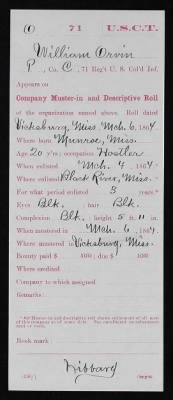 O 71 U.S.C.T.
William Orvin
P, Co. C, 71 Reg't U. S. Col'd Inf.
Appears on
Company Muster-in and Descriptive Roll
of the organization named above. Roll dated
Vicksburg, Miss. Mch. 6, 1864.
Where born Munroe, Miss.
Age 20 y'rs; occupation Hostler
When enlisted Mch. 4, 1864.
Where enlisted Black River, Miss.
For what period enlisted 3 years.
Eyes Blk. ; hair Blk.
Complexion Blk. ; height 5 ft. 11 in.
When mustered in Mch. 6, 1864.
Where mustered in Vicksburg, Miss.
Bounty paid $ 100; due $ 100
Where credited
Company to which assigned
Remarks:
Book mark:
Hibbard